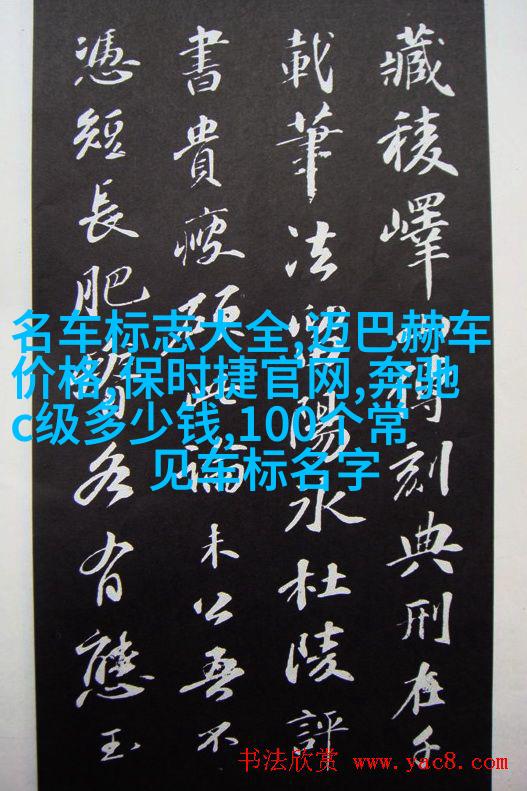 藏稜嶧山傳刻典刑在千
載筆法留陽冰杜陵評
書貴瘦硬此論未公吾不
憑短長肥瘠各有態玉
名车标志大全,迈巴赫车
价格,保时捷官网,奔驰
c级多少钱,100个常
见车标名字
书法欣赏 www.yac8.com